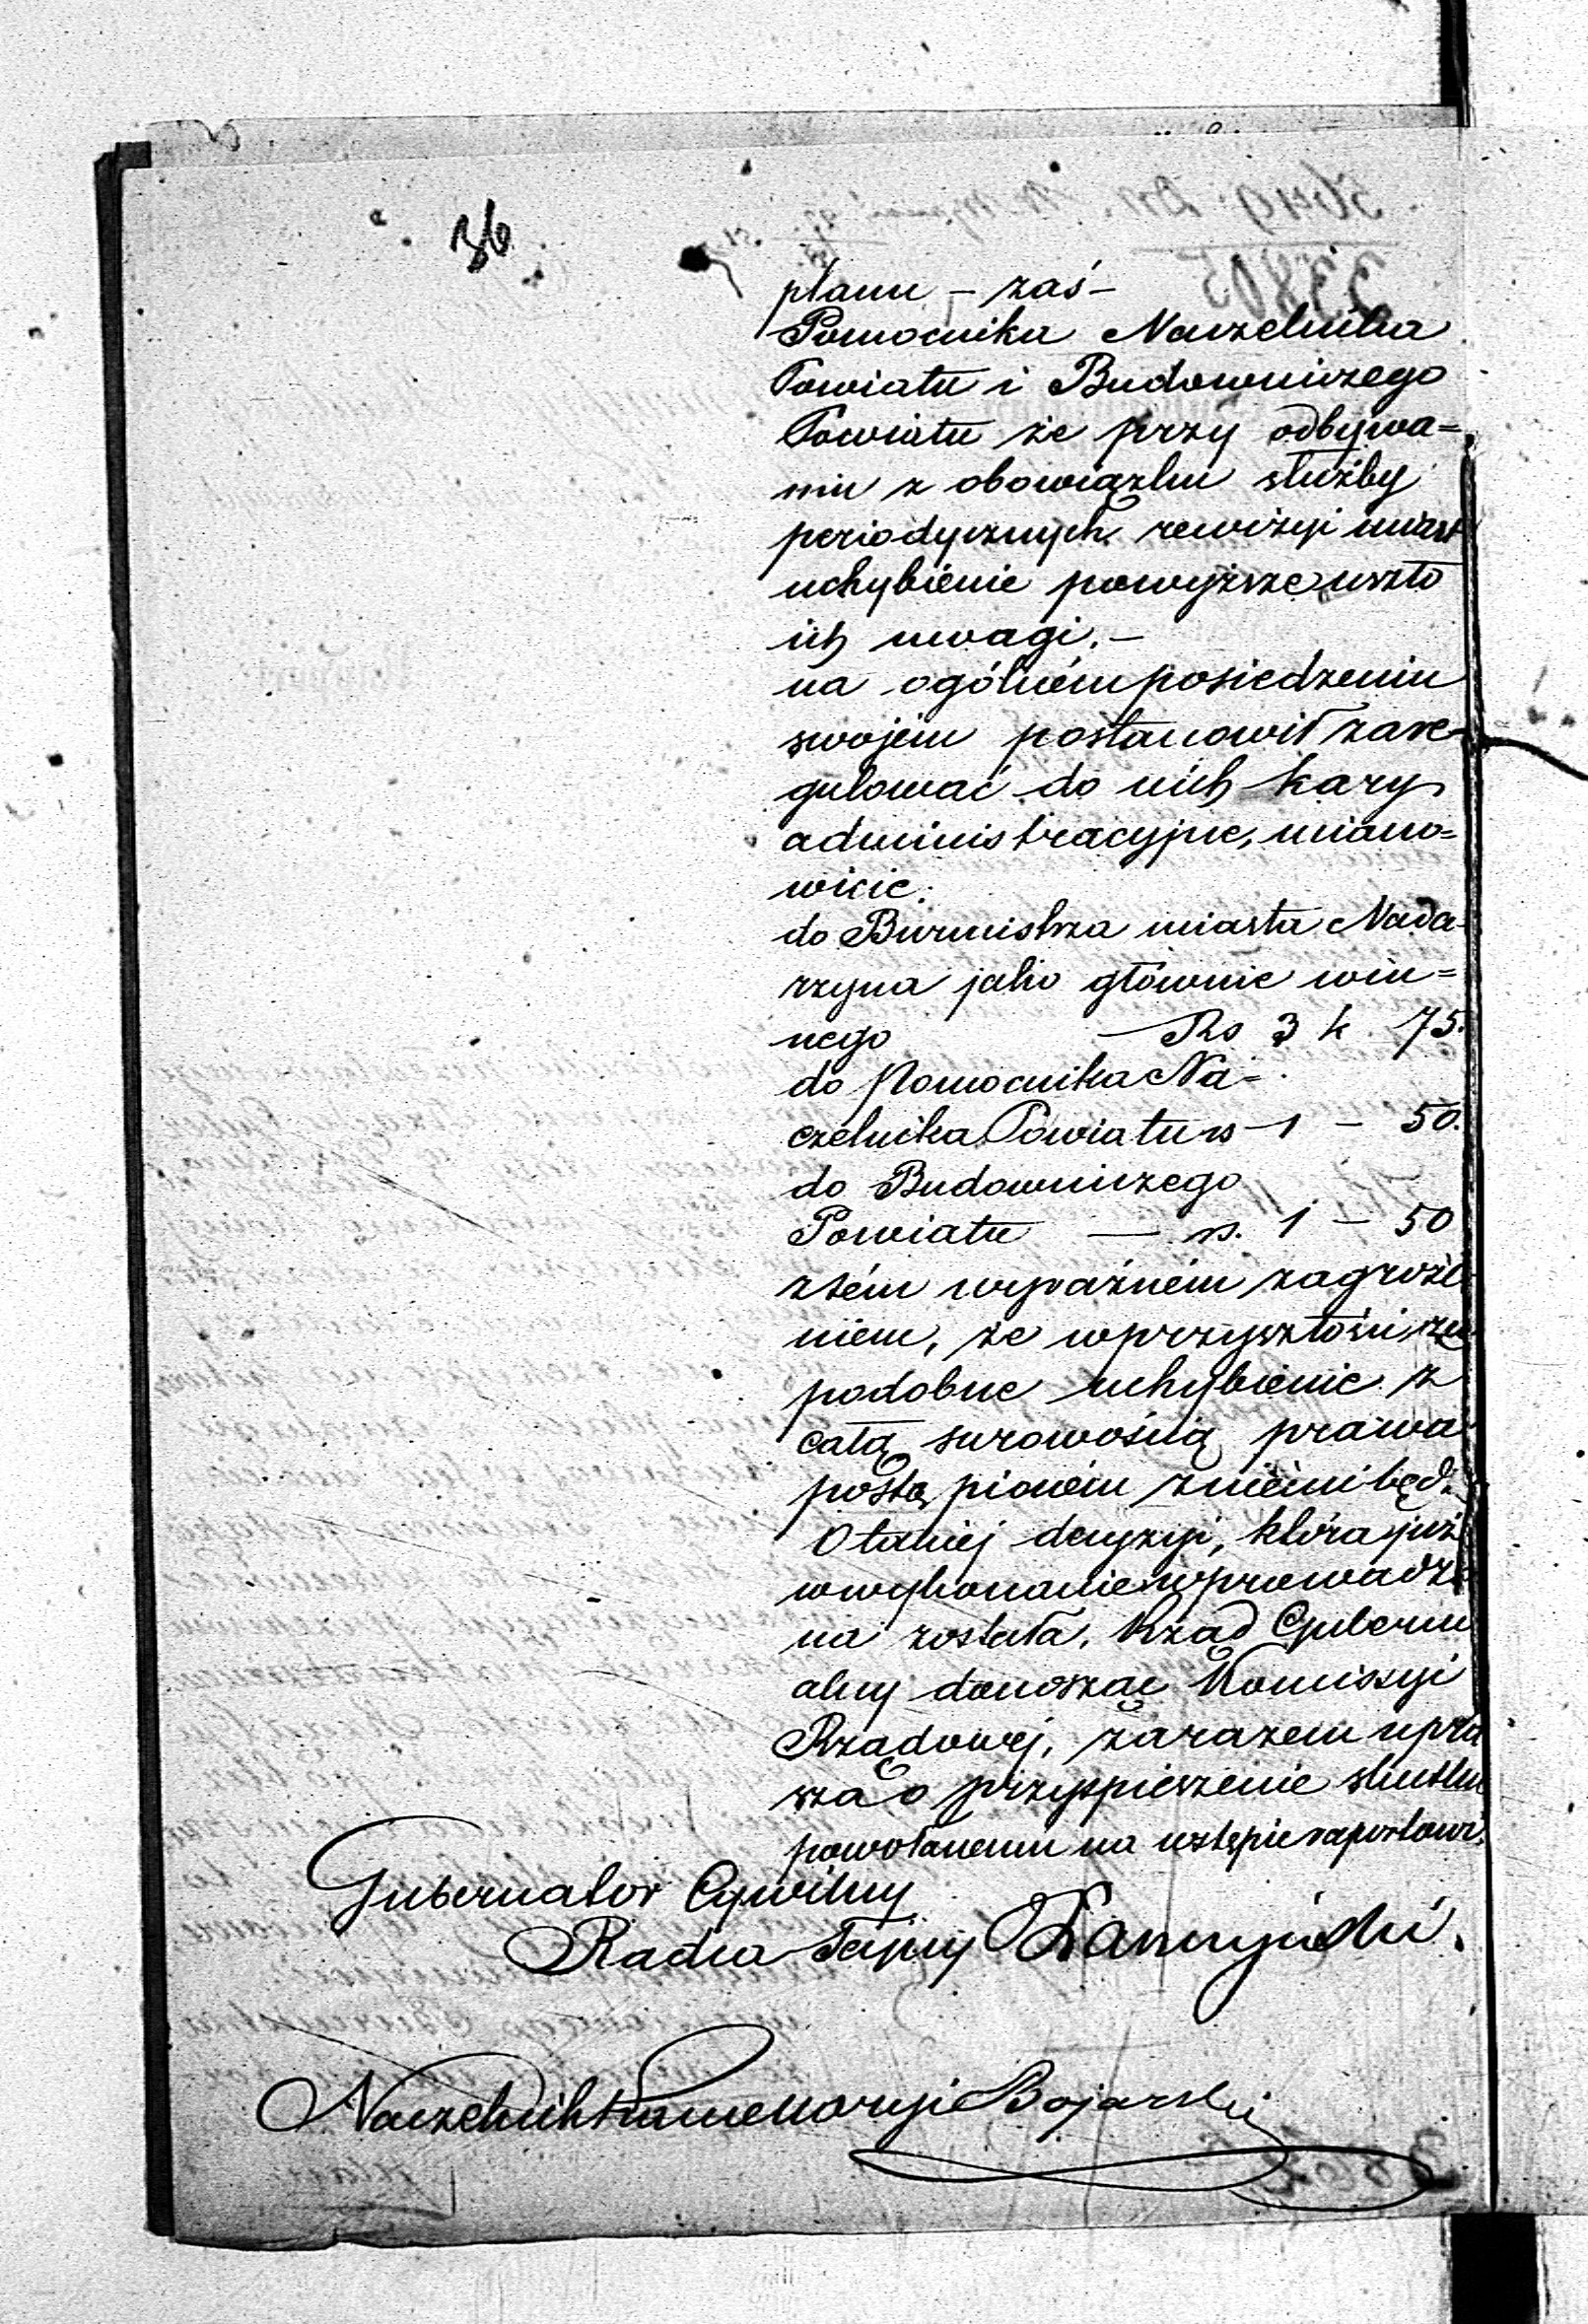 36
planu – zaś –
Pomocnika Naczelnika
Powiatu i Budowniczego
Powiatu że przy odbywa=
niu z obowiązku służby
periodycznych rewizyi miast
uchybienie powyższe uszło
ich uwagi. –
na ogólném posiedzeniu
swojém postanowił zare
gulować do nich kary
administracyjne, miano=
wicie:
do Burmistrza miasta Nada-
rzyna jako głównie win=
nego – Rs 3 k. 75.
do Pomocnika Na=
czelnika Powiatu rs – 1 – 50.
do Budowniczego
Powiatu — rs. 1 – 50
z tém wyraźném zagroże
niem, że w przyszłości za
podobne uchybienie z
całą surowością prawa
postąpioném z niemi będz
O takiej decyzyi, która już
w wykonanie wprowadzo
na została, Rząd Guberni
alny donosząc Kommissyi
Rządowej, zarazem upra
sza o przyspieszenie skutku
powołanemu na wstępie raportowi.
Gubernator Cywilny
Radca Tajny Łaszczyński.
Naczelnik Kancellaryi Bojarski